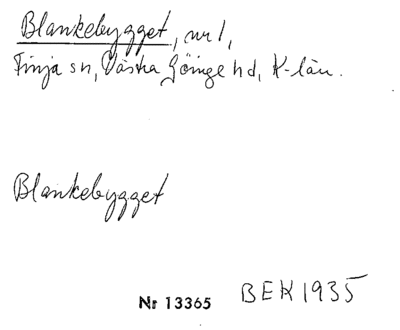 Blankebygget, nr 1,
Finja sn, Västra Göinge hd, K-län.
Blankebygget
Nr 13365 BEK 1935